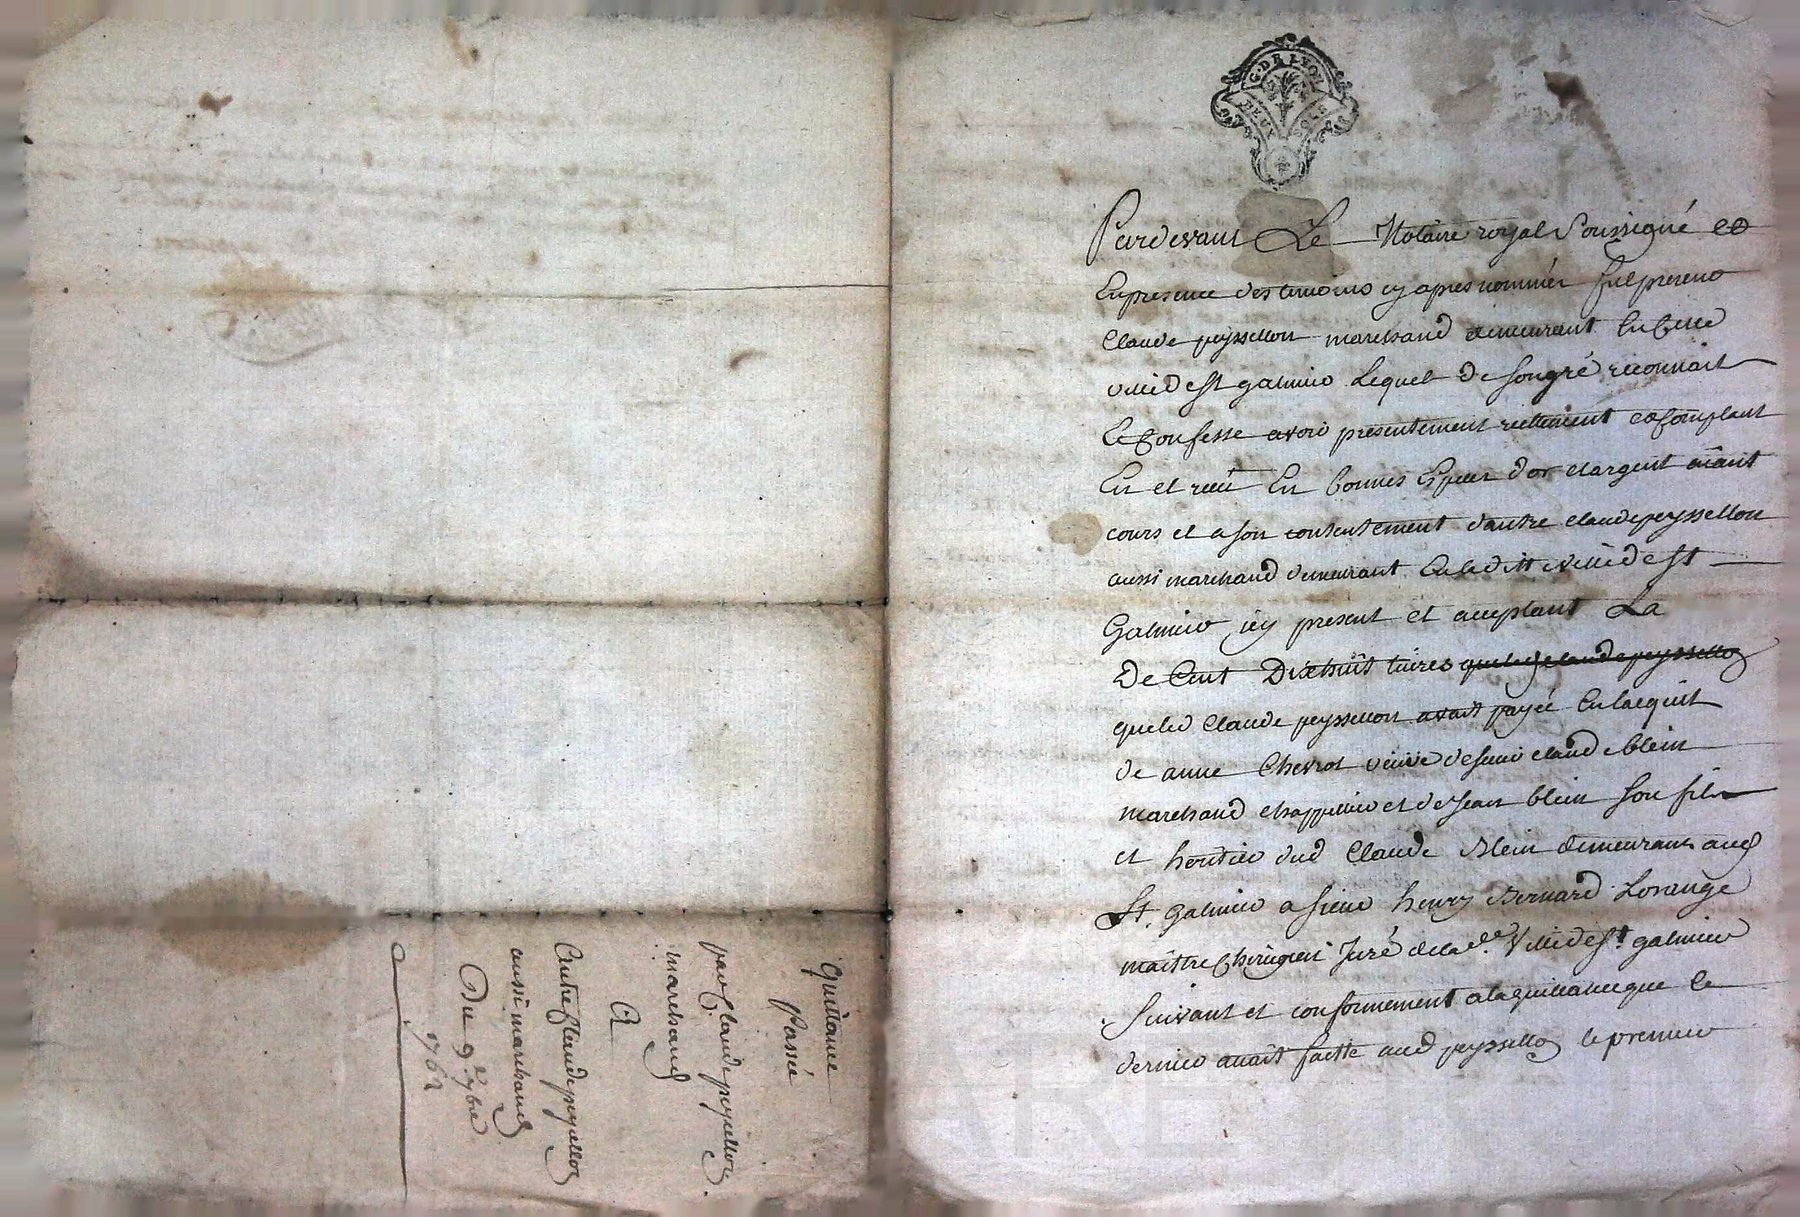 G. DE LYON
DEUX SOLS
Pardevant Le Notaire royal soussigné et
En presence des temoins cy apres nommés fut present
Claude peyssellon marchand demeurant En cette
ville de St galmier Lequel de son gré reconnait
Et Confesse avoir presentement reellement et Comptant
Eu et reçû En bonnes Especes d'or et argent aïant
cours et a son contentement d'autre claude peyssellon
aussi marchand demeurant En lad. ville de St
Galmier icy present et acceptant La
de Cent Dixhuit livres que led. claude peyssellon
que led Claude peyssellon avait payée En lacquit
de anne Chevrot veuve de feu claude blein
marchand chappellier et de Jean blein son fils
et heritier dud Claude Blein demeurans aud
St. galmier a sieur henry Bernard Lorange
maître Chirugien Juré de lad.e Ville de St galmier
Suivant et conformement a la quittance que le
dernier avait faitte aud peyssellon le premier
Quittance
Passée
par Claude peyssellon
marchand
A
Autre Claude peyssellon
aussi marchand
Du 9.e 7bre
1762